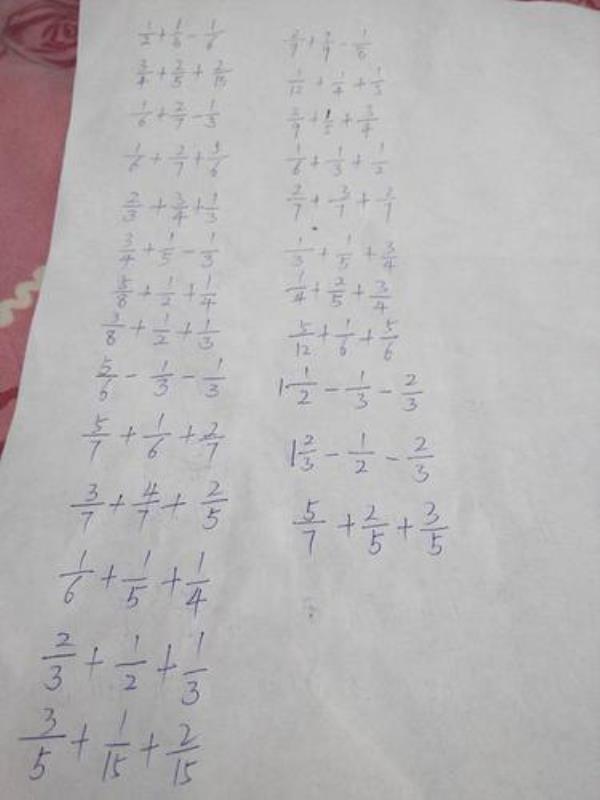 1/2 + 1/6 - 1/6
3/4 + 2/5 + 2/15
1/6 + 2/7 - 1/3
1/6 + 2/7 + 5/6
2/3 + 3/4 + 1/3
3/4 + 1/5 - 1/3
5/8 + 1/2 + 1/4
3/8 + 1/2 + 1/3
5/6 - 1/3 - 1/3
5/7 + 1/6 + 2/7
3/7 + 4/7 + 2/5
1/6 + 1/5 + 1/4
2/3 + 1/2 + 1/3
3/5 + 1/15 + 2/15
2/9 + 7/9 - 1/6
1/12 + 1/4 + 1/3
2/9 + 1/5 + 3/4
1/6 + 1/3 + 1/2
2/7 + 3/7 + 2/7
1/3 + 1/5 + 3/4
1/4 + 2/5 + 3/4
5/12 + 1/6 + 5/6
1 1/2 - 1/3 - 2/3
1 2/3 - 1/2 - 2/3
5/7 + 2/5 + 3/5